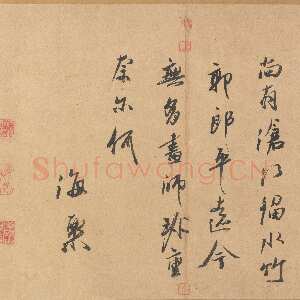 尚有滄江編水竹
郭郎平遠今
無多畫師珍重
奈尓何
海粟
Shufawang.CN